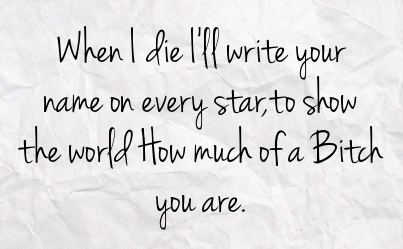 When I die I'll write your
name on every star,to show
the world How much of a Bitch
you are.